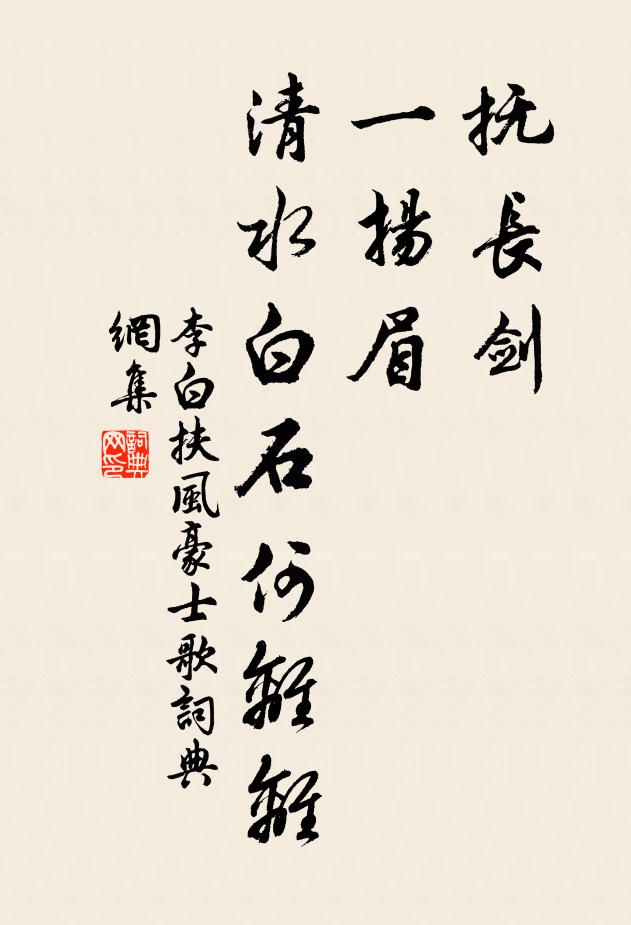 抚長剑
一揚眉
清水白石何離離
李白扶風豪士歌詞典
網集
詞典
网印